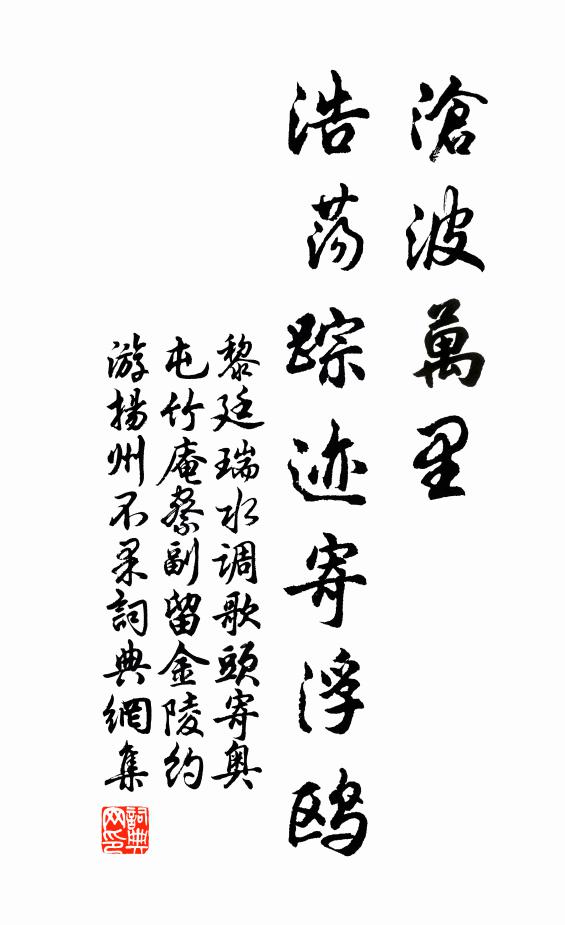 滄波萬里
浩荡踪迹寄浮鸥
黎廷瑞水调歌頭寄奥
屯竹庵蔡副留金陵约
游揚州不果詞典網集
詞典网印